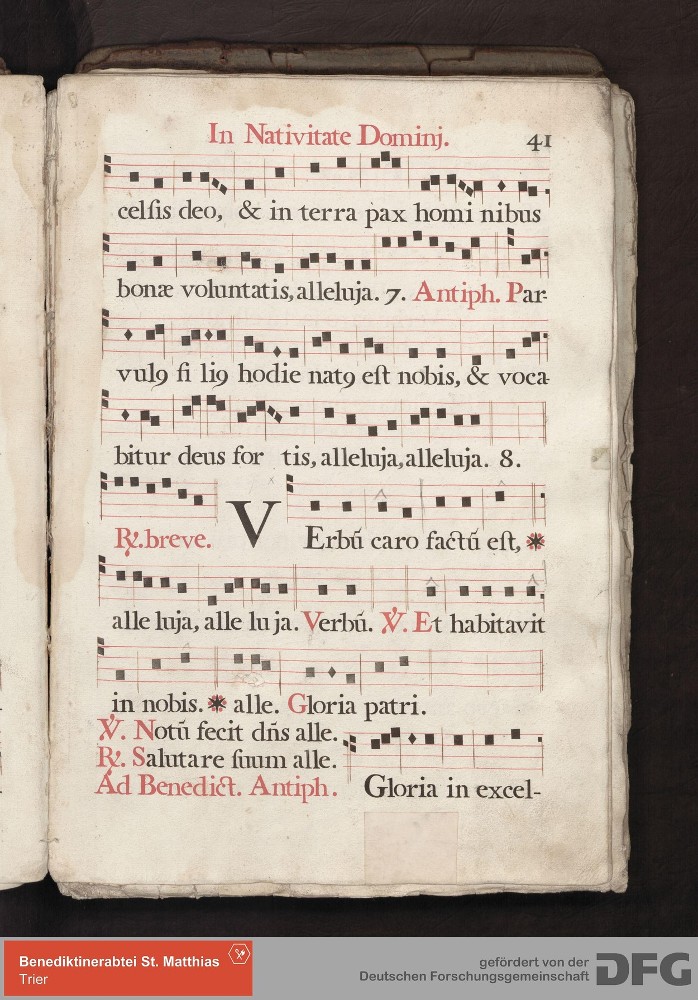 In Nativitate Dominj. 41
celsis deo, & in terra pax homi nibus
bonæ voluntatis, alleluja. 7. Antiph. Par-
vulꝯ fi liꝯ hodie natꝯ est nobis, & voca-
bitur deus for tis, alleluja, alleluja. 8.
℟. breve. VErbũ caro factũ est, *
alle luja, alle lu ja. Verbũ. ℣. Et habitavit
in nobis. * alle. Gloria patri.
℣. Notũ fecit dñs alle.
℟. Salutare suum alle.
Ad Benedict. Antiph. Gloria in excel-
Benediktinerabtei St. Matthias
Trier
gefördert von der
Deutschen Forschungsgemeinschaft DFG